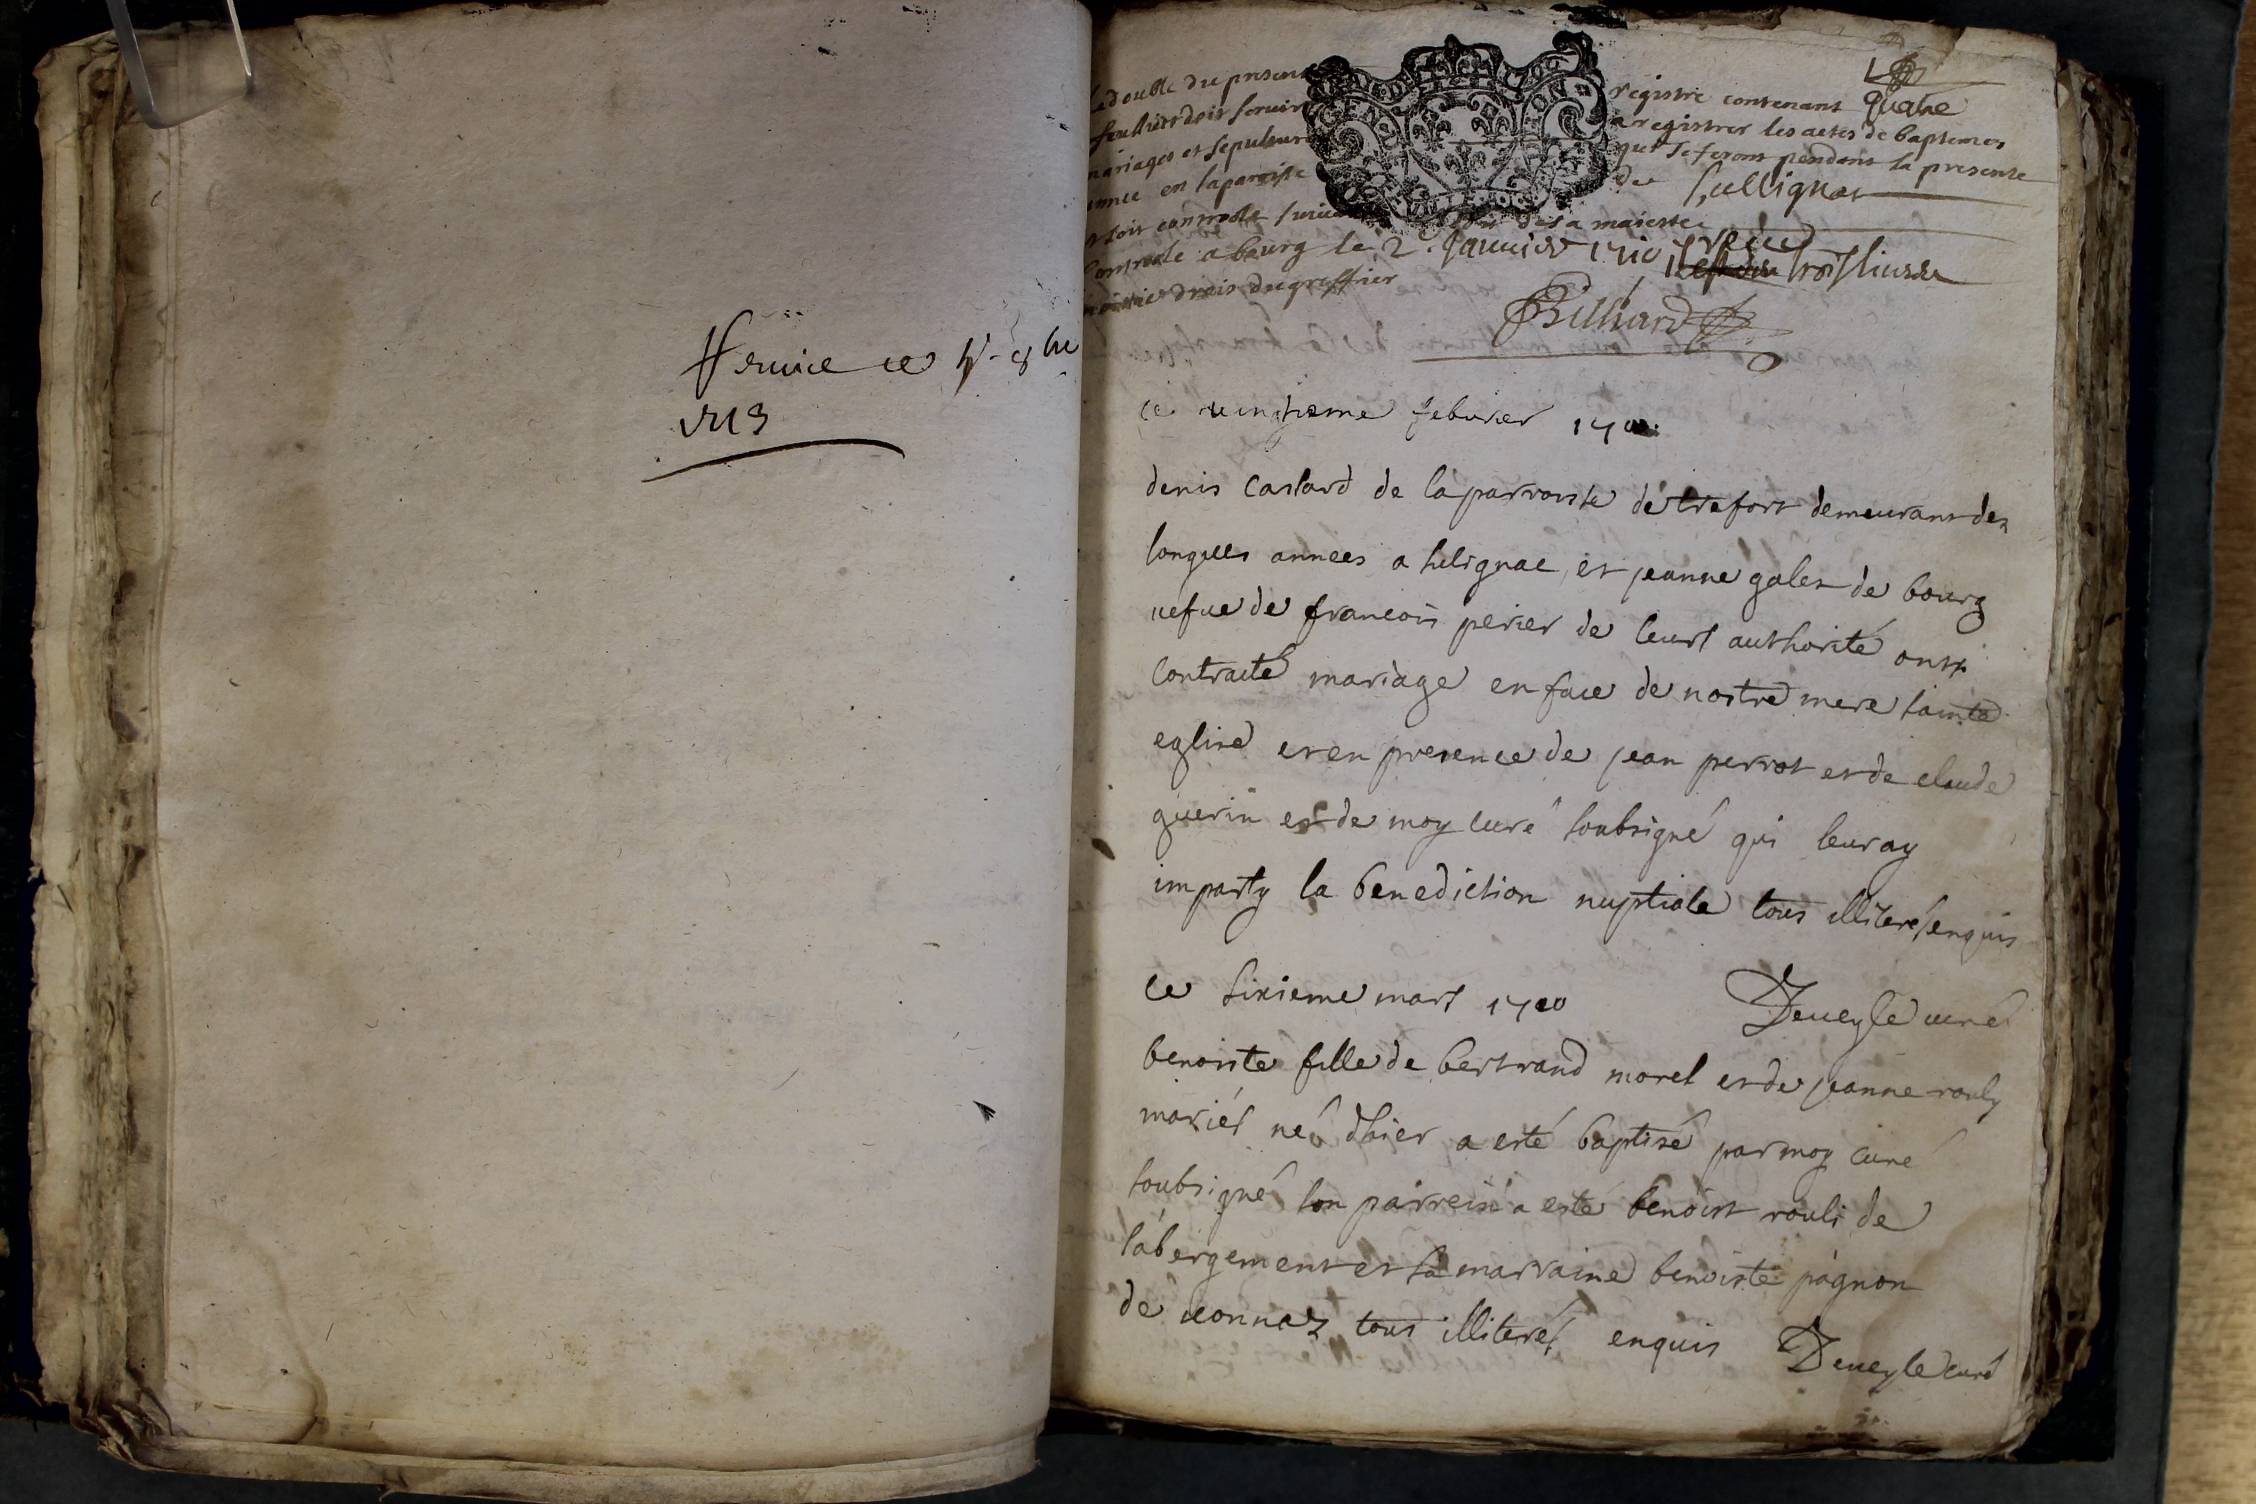 le double du present registre contenant quatre
feulliets doit servir a registrer les actes de baptemes
mariages et sepulture qui se feront pendant la presente
annee en la paroisse de Sullignat
de sa majesté
Controolé a bourg le 2e Janvier 1710 reçeu trois livres
droit du greffier
Billiard
1713
ce vingtieme febvrier 1710
denis castard de la parroisse de trefort demeurant des
longues annees a sulignac, et jeanne galet de bourg
vefve de francois perier de leurs authorité ont
contracté mariage en face de nostre mere sainte
eglise et en presence de jean perrot et de claude
guerin et de moy curé soubsigné qui leur ay
imparty la benediction nuptiale tous illiterés enquis
ce sixieme mars 1710 Deveyle curé
benoiste fille de bertrand morel et de jeanne rouly
mariés né d'hier a esté baptisé par moy curé
soubsigné son parrein a esté benoist rouli de
l'abergement et sa marraine benoiste pagnon
de vonnaz tous illiterés enquis Deveyle curé